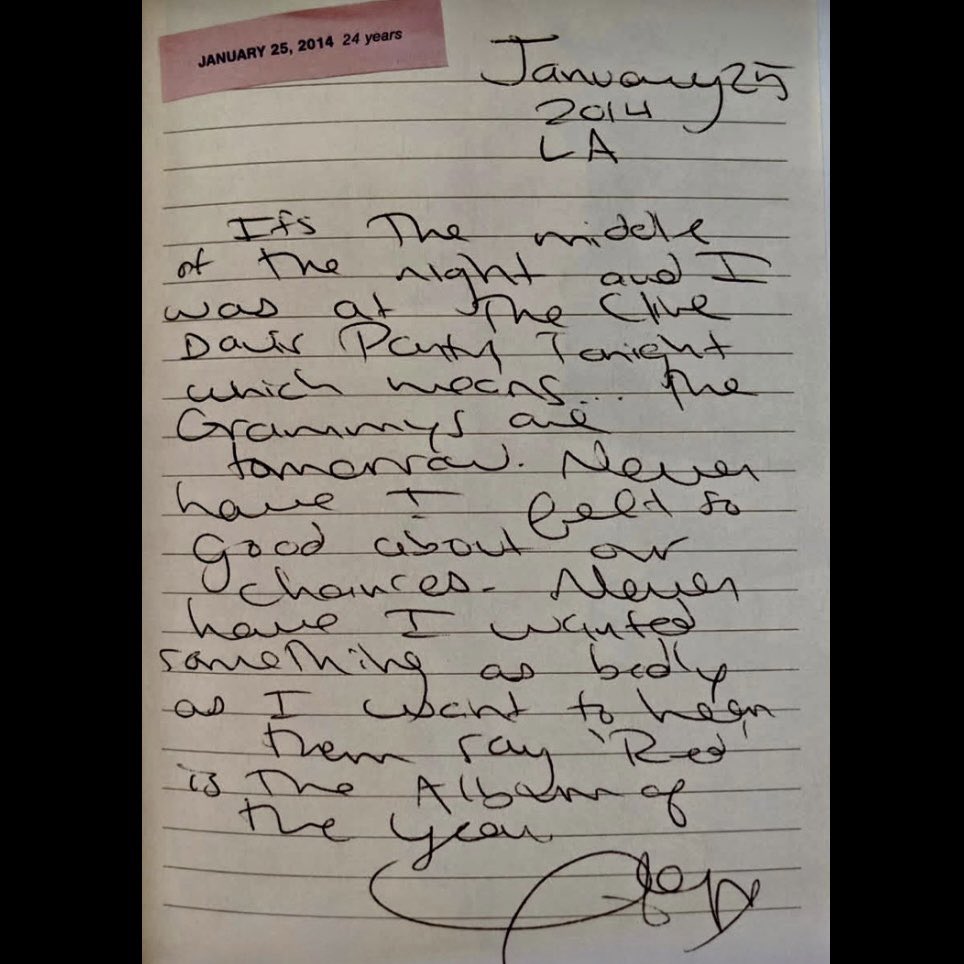 JANUARY 25, 2014 24 years
January 25
2014
LA
It's The middle
of the night and I
was at The Clive
Davis Party Tonight
which means... The
Grammys are
tomorrow. Never
have I felt so
good about our
chances. Never
have I wanted
something as badly
as I want to hear
them say 'Red'
is The Album of
the year